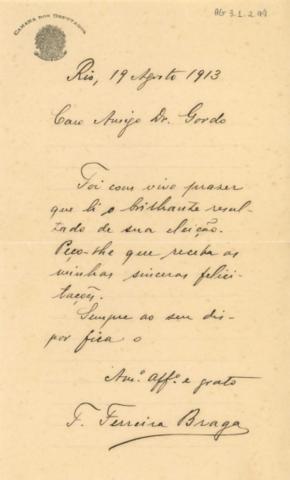 AG 3.1.2.99
CAMARA DOS DEPUTADOS
Rio, 19 Agosto 1913
Caro Amigo Dr. Gordo
Foi com vivo prazer
que li o brilhante resul-
tado de sua eleição.
Peço-lhe que receba as
minhas sinceras felici-
tações.
Sempre ao seu dis-
por fica o
Amº. Affº. e grato
F. Ferreira Braga